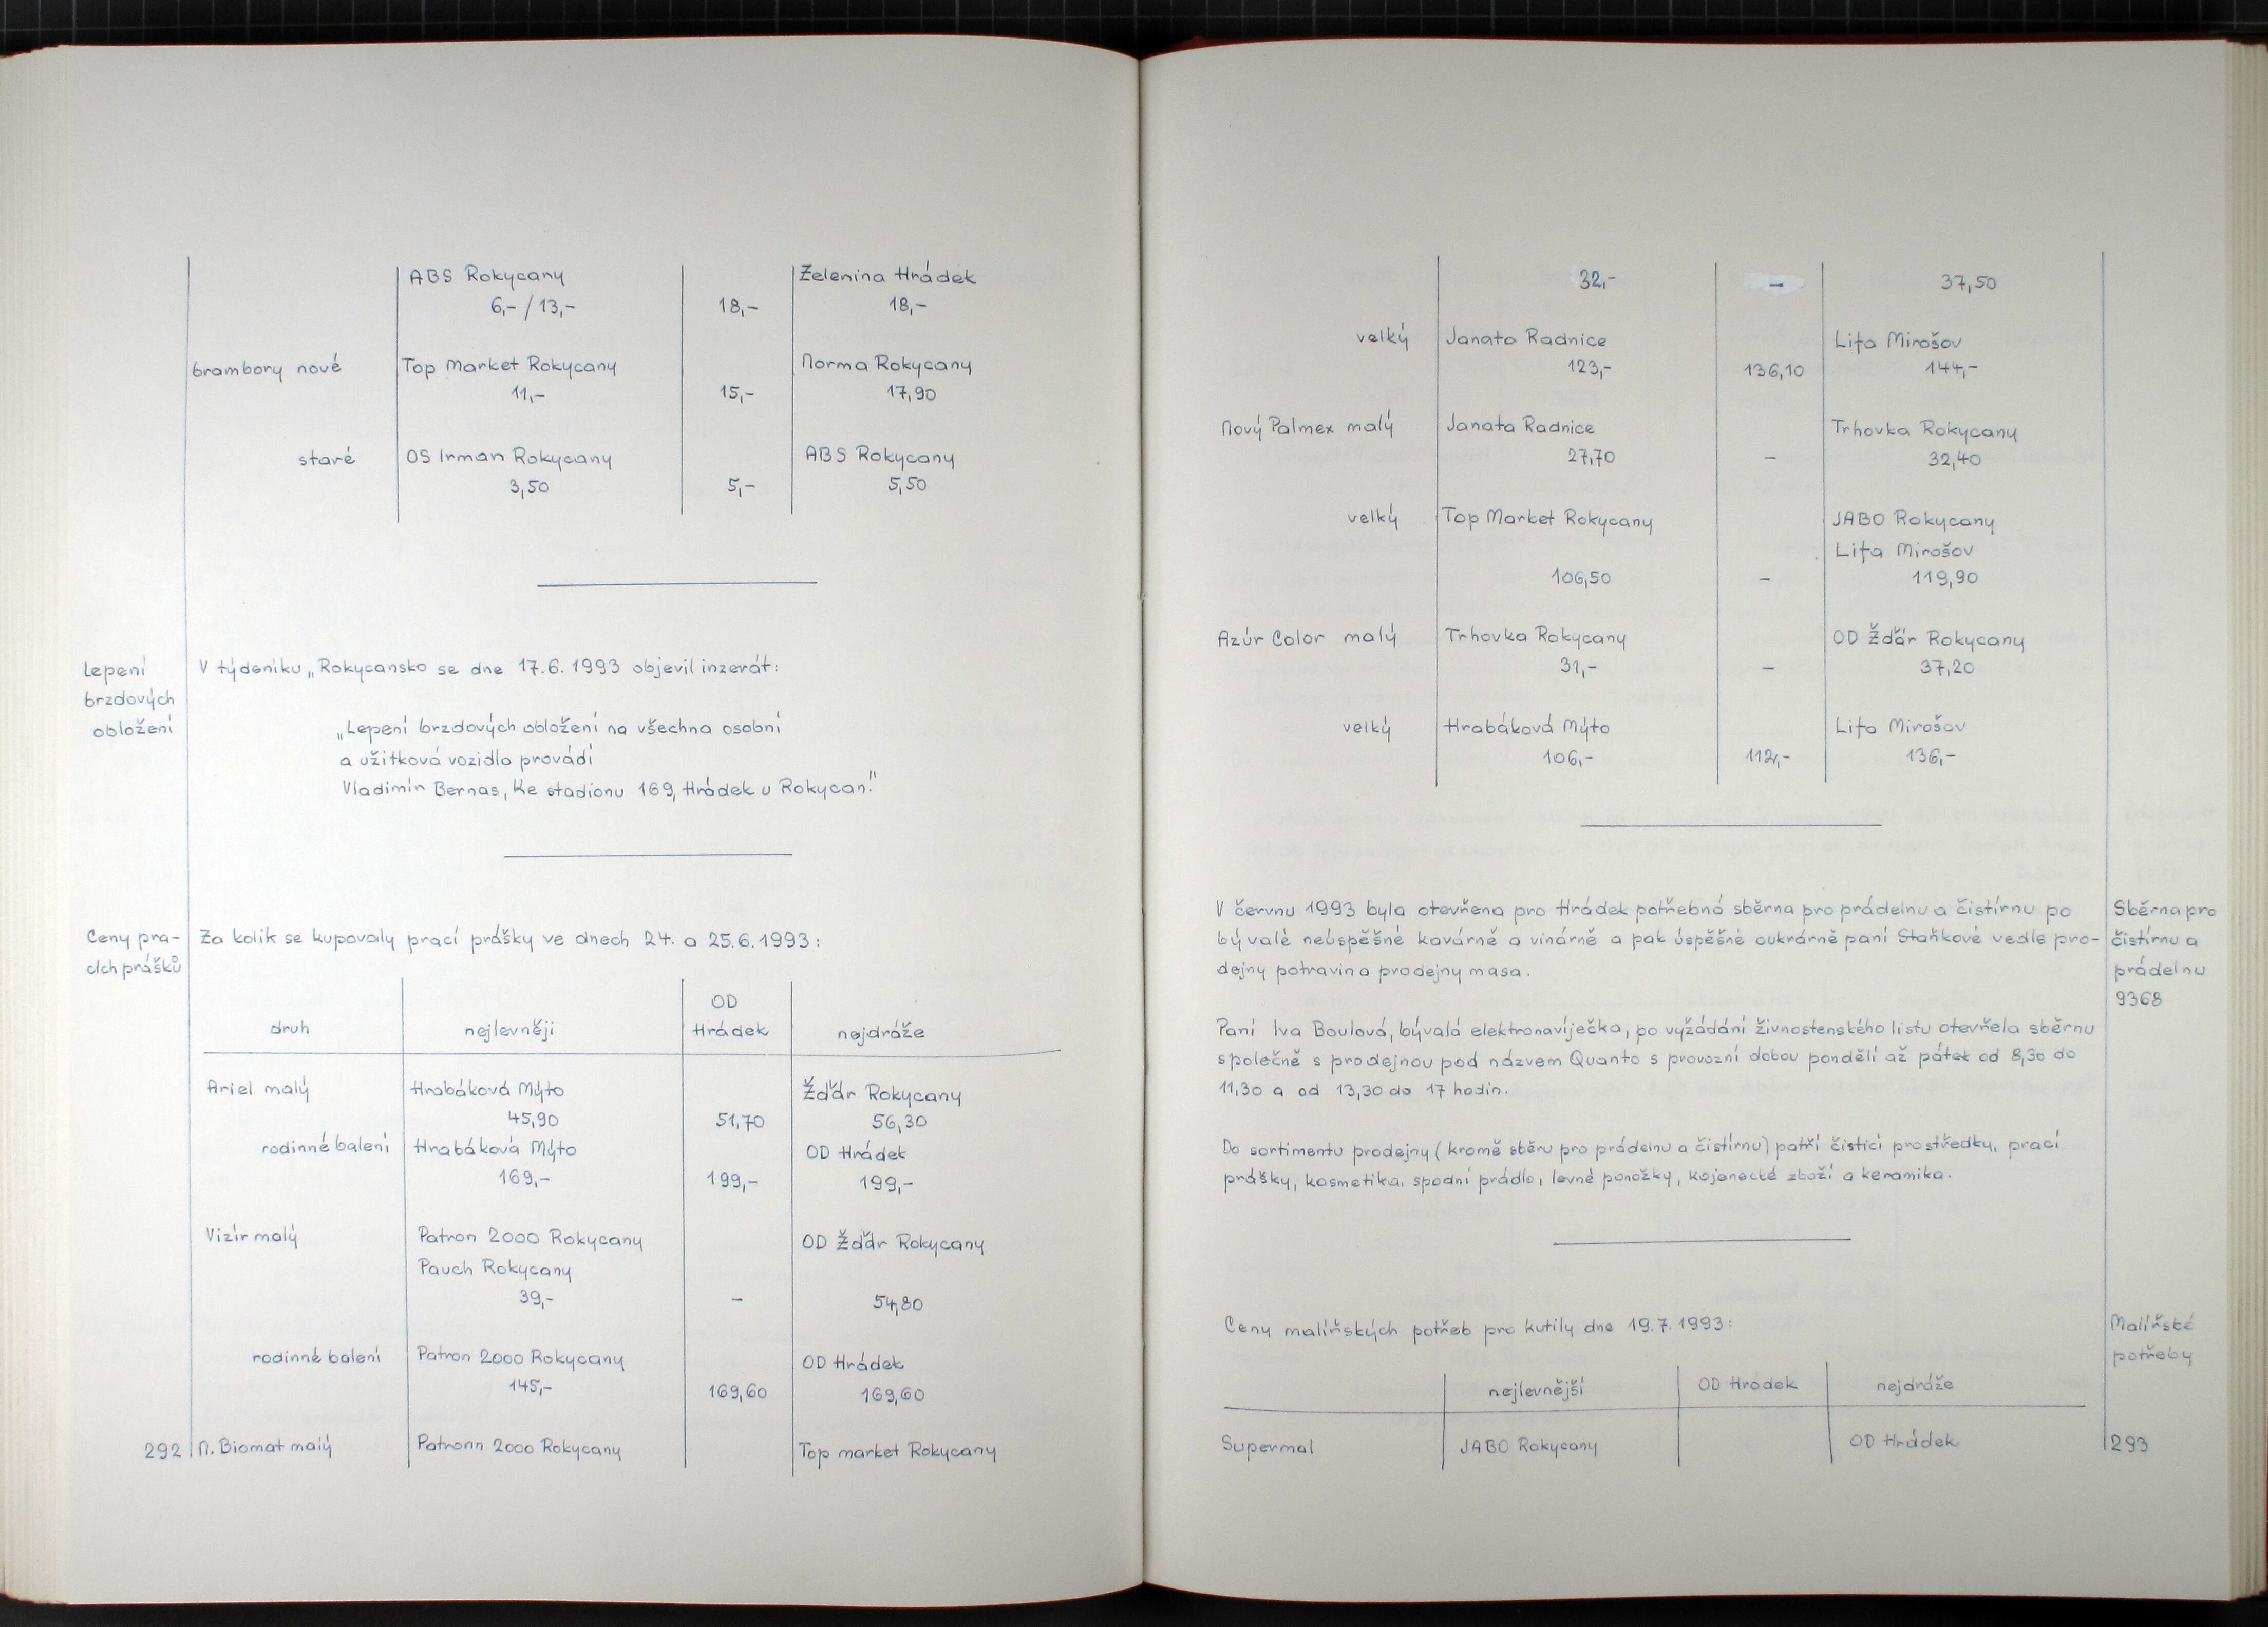 ABS Rokycany Zelenina Hrádek
6,- / 13,- 18,- 18,-
brambory nové Top Market Rokycany Norma Rokycany
11,- 15,- 17,90
staré OS Irman Rokycany ABS Rokycany
3,50 5,- 5,50
Lepení brzdových obložení
V týdeníku „Rokycansko se dne 17.6.1993 objevil inzerát:
„Lepení brzdových obložení na všechna osobní
a užitková vozidla provádí
Vladimír Bernas, Ke stadionu 169, Hrádek u Rokycan."
Ceny pra-
cích prášků
Za kolik se kupovaly prací prášky ve dnech 24. a 25.6.1993:
OD
druh nejlevněji Hrádek nejdráže
Ariel malý Hrabáková Mýto Žďár Rokycany
45,90 51,70 56,30
rodinné balení Hrabáková Mýto OD Hrádek
169,- 199,- 199,-
Vizír malý Patron 2000 Rokycany OD Žďár Rokycany
Pauch Rokycany
39,- - 54,80
rodinné balení Patron 2000 Rokycany OD Hrádek
145,- 169,60 169,60
292 N. Biomat malý Patronn 2000 Rokycany Top market Rokycany
32,- - 37,50
velký Janata Radnice Lifa Mirošov
123,- 136,10 144,-
Nový Palmex malý Janata Radnice Trhovka Rokycany
27,70 - 32,40
velký Top Market Rokycany JABO Rokycany
Lifa Mirošov
106,50 - 119,90
Azúr Color malý Trhovka Rokycany OD Žďár Rokycany
31,- - 37,20
velký Hrabáková Mýto Lifa Mirošov
106,- 112,- 136,-
V červnu 1993 byla otevřena pro Hrádek potřebná sběrna pro prádelnu a čistírnu po
bývalé neúspěšné kavárně a vinárně a pak úspěšné cukrárně paní Staňkové vedle pro-
dejny potravin a prodejny masa.
Sběrna pro
čistírnu a
prádelnu
9368
Paní Iva Boulová, bývalá elektronavíječka, po vyžádání živnostenského listu otevřela sběrnu
společně s prodejnou pod názvem Quanto s provozní dobou pondělí až pátek od 8,30 do
11,30 a od 13,30 do 17 hodin.
Do sortimentu prodejny (kromě sběru pro prádelnu a čistírnu) patří čisticí prostředky, prací
prášky, kosmetika, spodní prádlo, levné ponožky, kojenecké zboží a keramika.
Ceny malířských potřeb pro kutily dne 19.7.1993:
Malířské
potřeby
nejlevnější OD Hrádek nejdráže
Supermal JABO Rokycany OD Hrádek
293